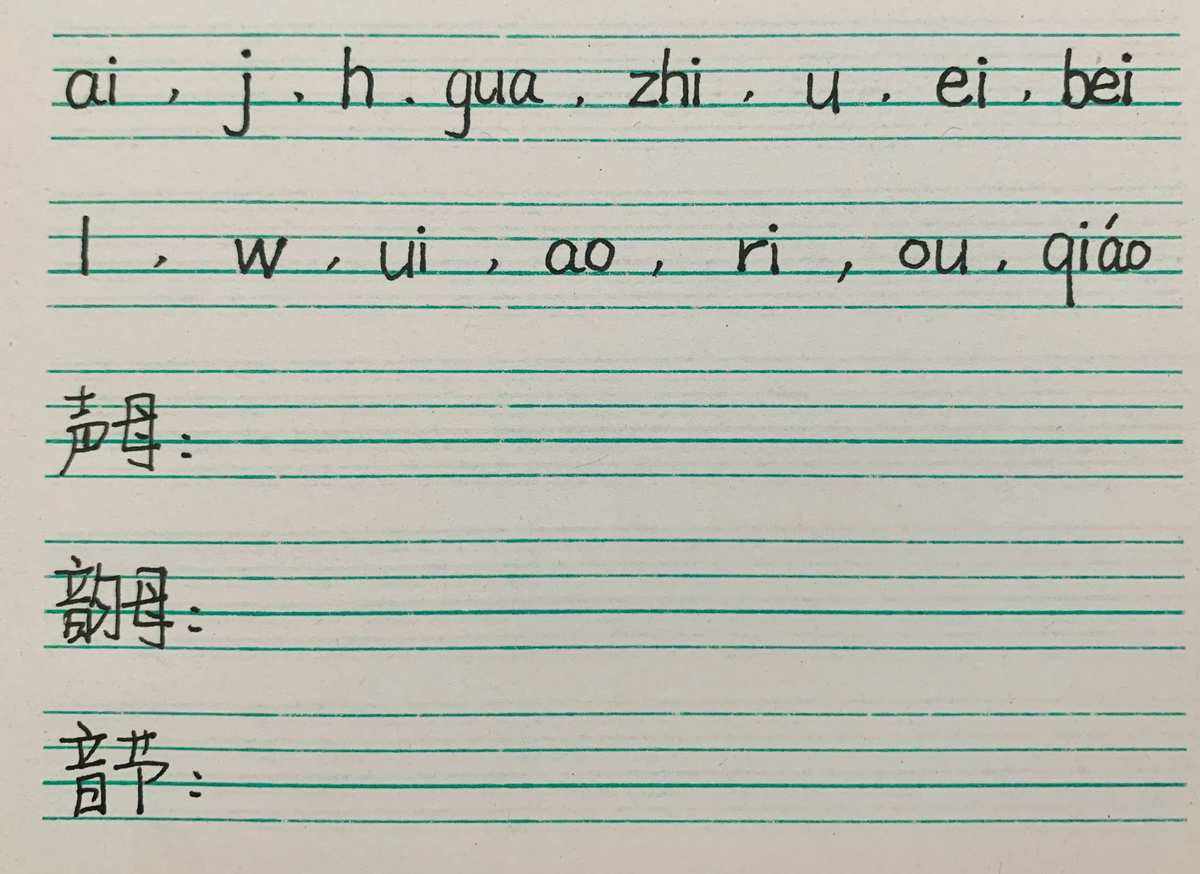 ai , j 、 h . gua , zhi , u . ei , béi
l , w , ui , ao , ri , ou , qiáo
声母:
韵母:
音节: